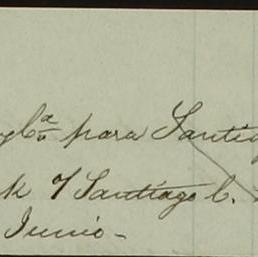 y Cª para Santia
k 7 Santiago C.
Junio -